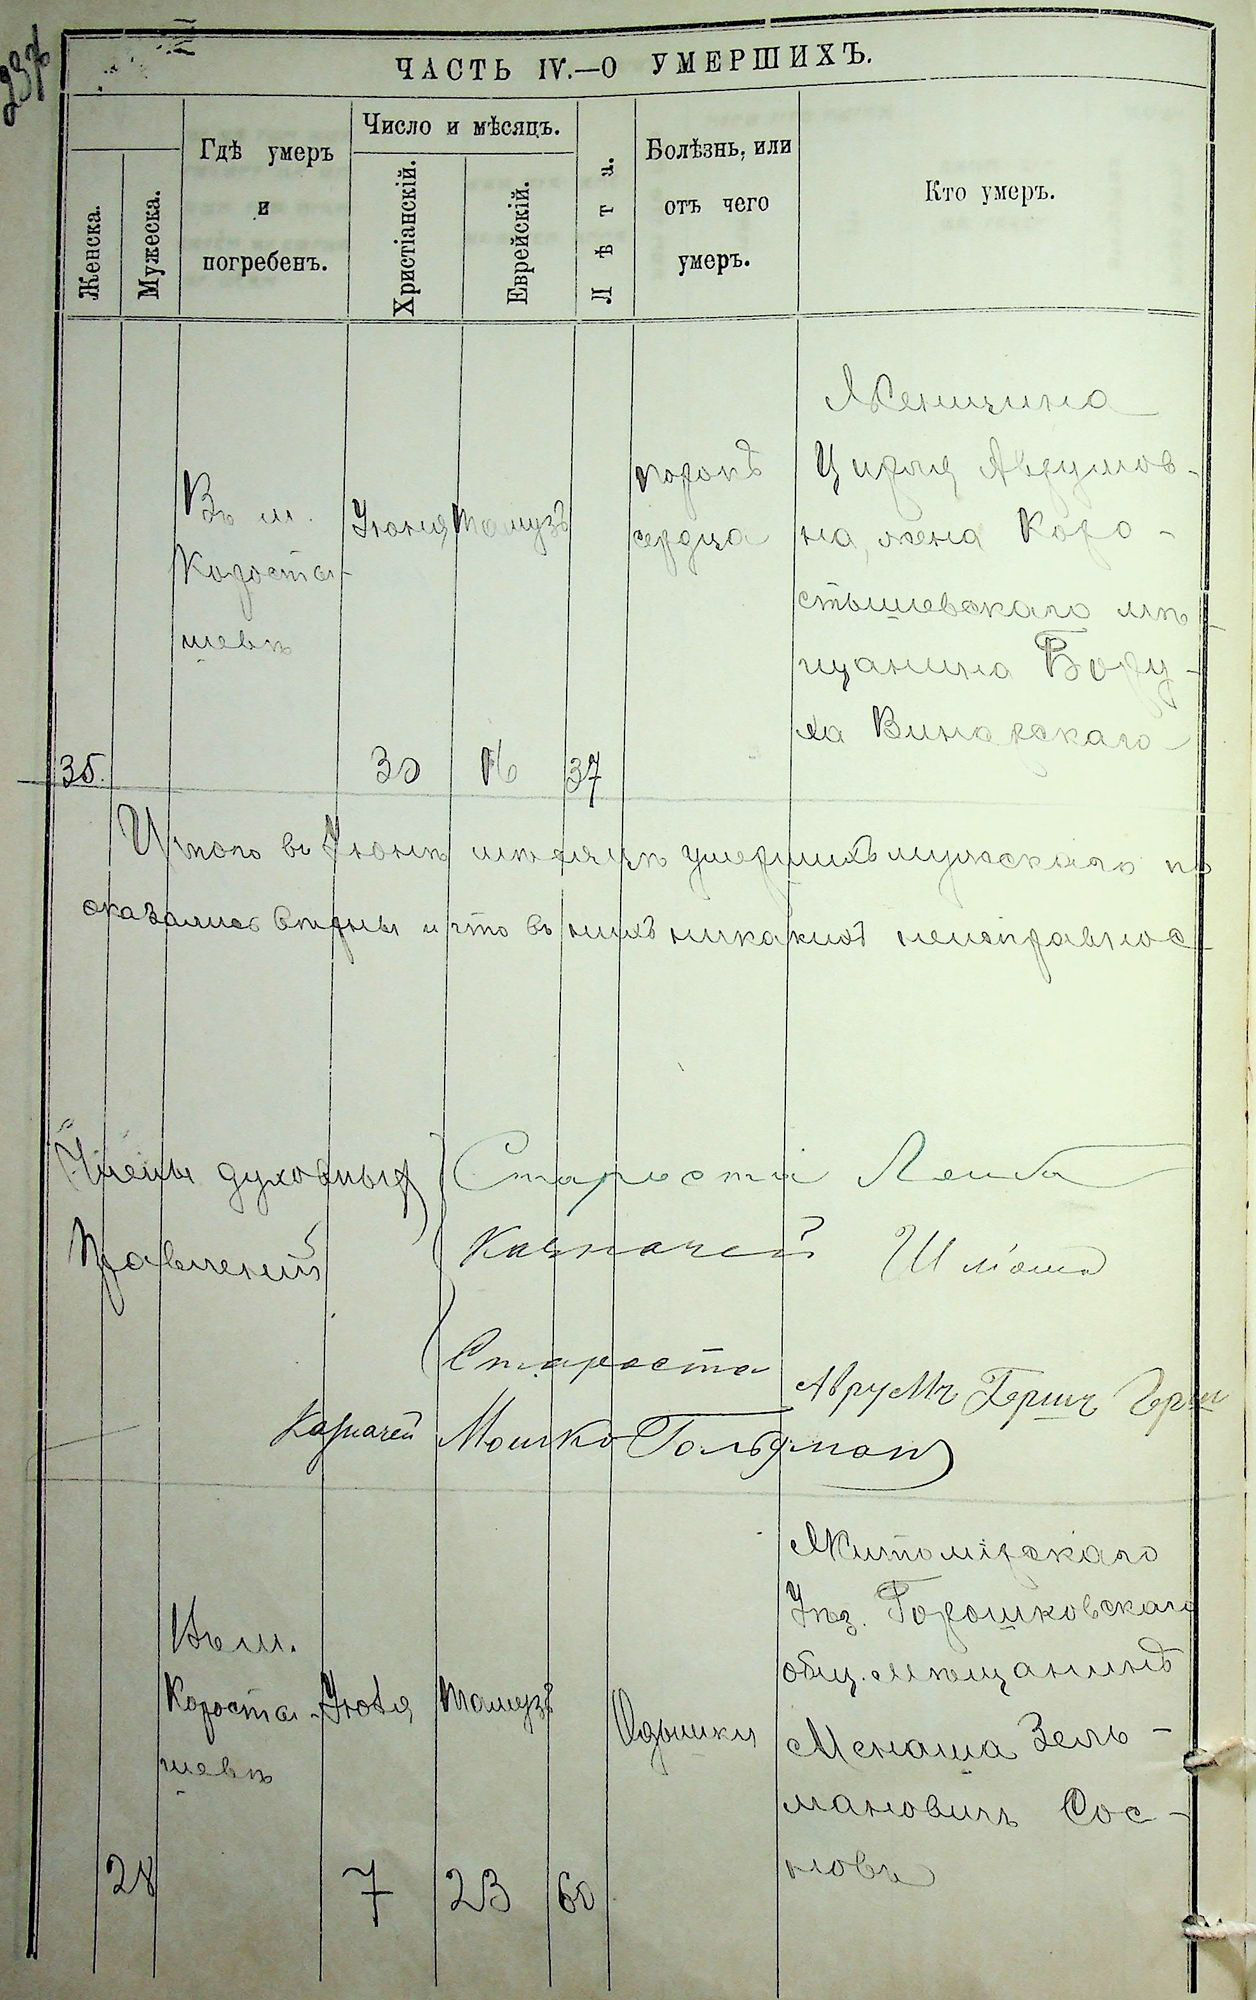 237
ЧАСТЬ IV.—О УМЕРШИХЪ.
Женска.
Мужеска.
Гдѣ умеръ
и
погребенъ.
Число и мѣсяцъ.
Христіанскій.
Еврейскій.
Лѣта.
Болѣзнь, или
отъ чего
умеръ.
Кто умеръ.
35.
Въ м.
Коросты-
шевѣ
Іюня
30
Тамузъ
16
37
порокъ
сердца
Женщина
Цирля Аврумов-
на, жена Коро-
стышевскаго мѣ-
щанина Бору-
ха Винарскаго
Итого въ Іюнѣ мѣсяцѣ умершихъ мужскаго по
оказались вѣрны и что въ нихъ никакихъ неисправнос-
Члены духовныхъ
Правленій
Староста Лейба
Казначей Шмоша
Староста Аврумъ Гершъ Герш
Казначей Мошко Гольдман
28
Въ м.
Коросты-
шевѣ
Іюля
7
Тамузъ
23
60
Одышки
Житомірскаго
Уѣз. Горошковскаго
общ. мѣщанинъ
Менаша Зель-
мановичъ Сос-
новъ